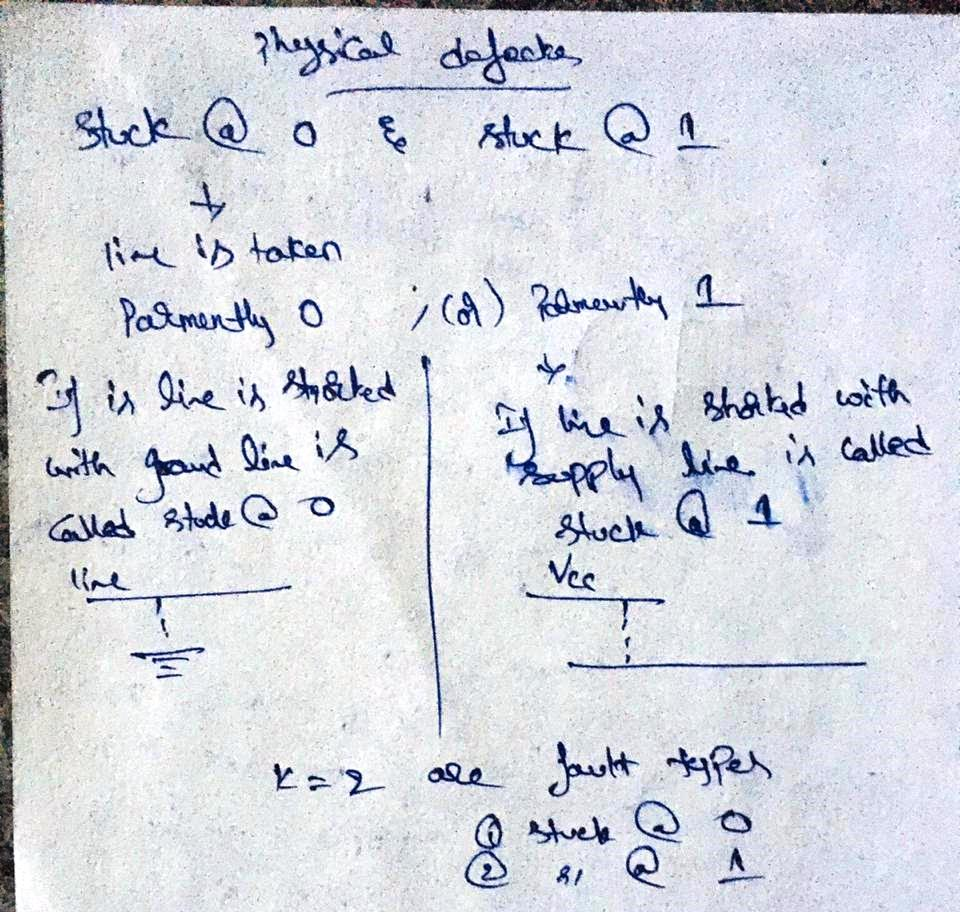 Physical defects
Stuck @ 0 & stuck @ 1
line is taken
Parmently 0 ; (or) Parmently 1
If is line is shorted
with ground line is
called stude @ 0
line
If line is shorted with
supply line is called
stuck @ 1
Vcc
K = 2 are fault types
① stuck @ 0
② s, @ 1